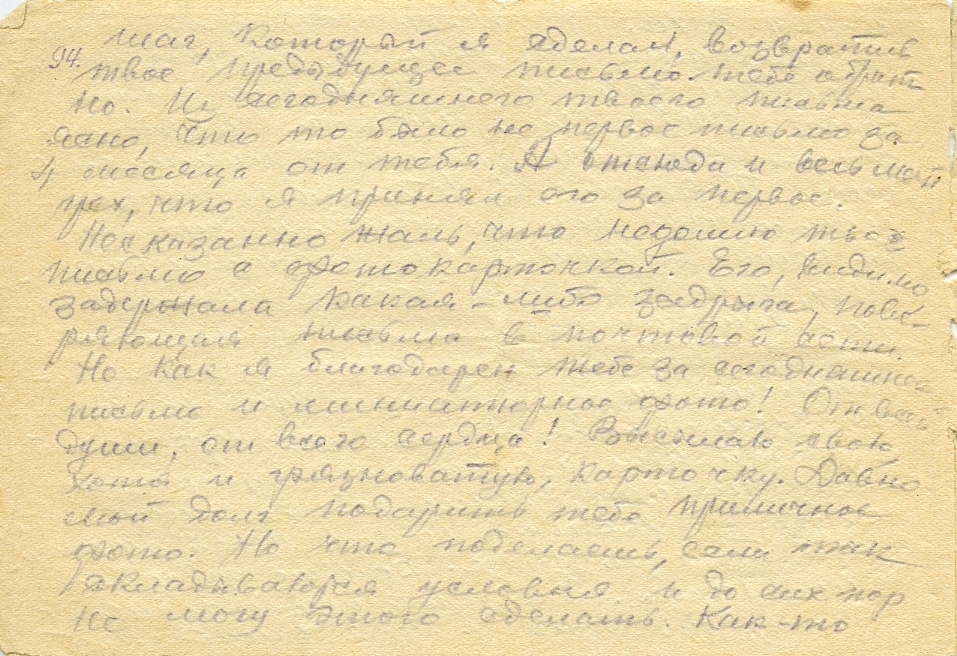 94.
шаг, который я сделал, возвратив
твое предыдущее письмо тебе обрат-
но. Из сегодняшнего твоего письма
ясно, что то было не первое письмо за
4 месяца от тебя. А отсюда и весь мой
грех, что я принял его за первое.
Несказанно жаль, что недошло твое
письмо с фотокарточкой. Его, видимо
задержала какая-либо задрыга, прове-
ряющая письма в почтовой сети.
Но как я благодарен тебе за сегодняшнее
письмо и миниатюрное фото! От всей
души, от всего сердца! Высылаю свою
хотя и грязноватую, карточку. Давно
мой долг подарить тебе приличное
фото. Но что поделаешь, если так
складываются условия и до сих пор
не могу этого сделать. Как-то